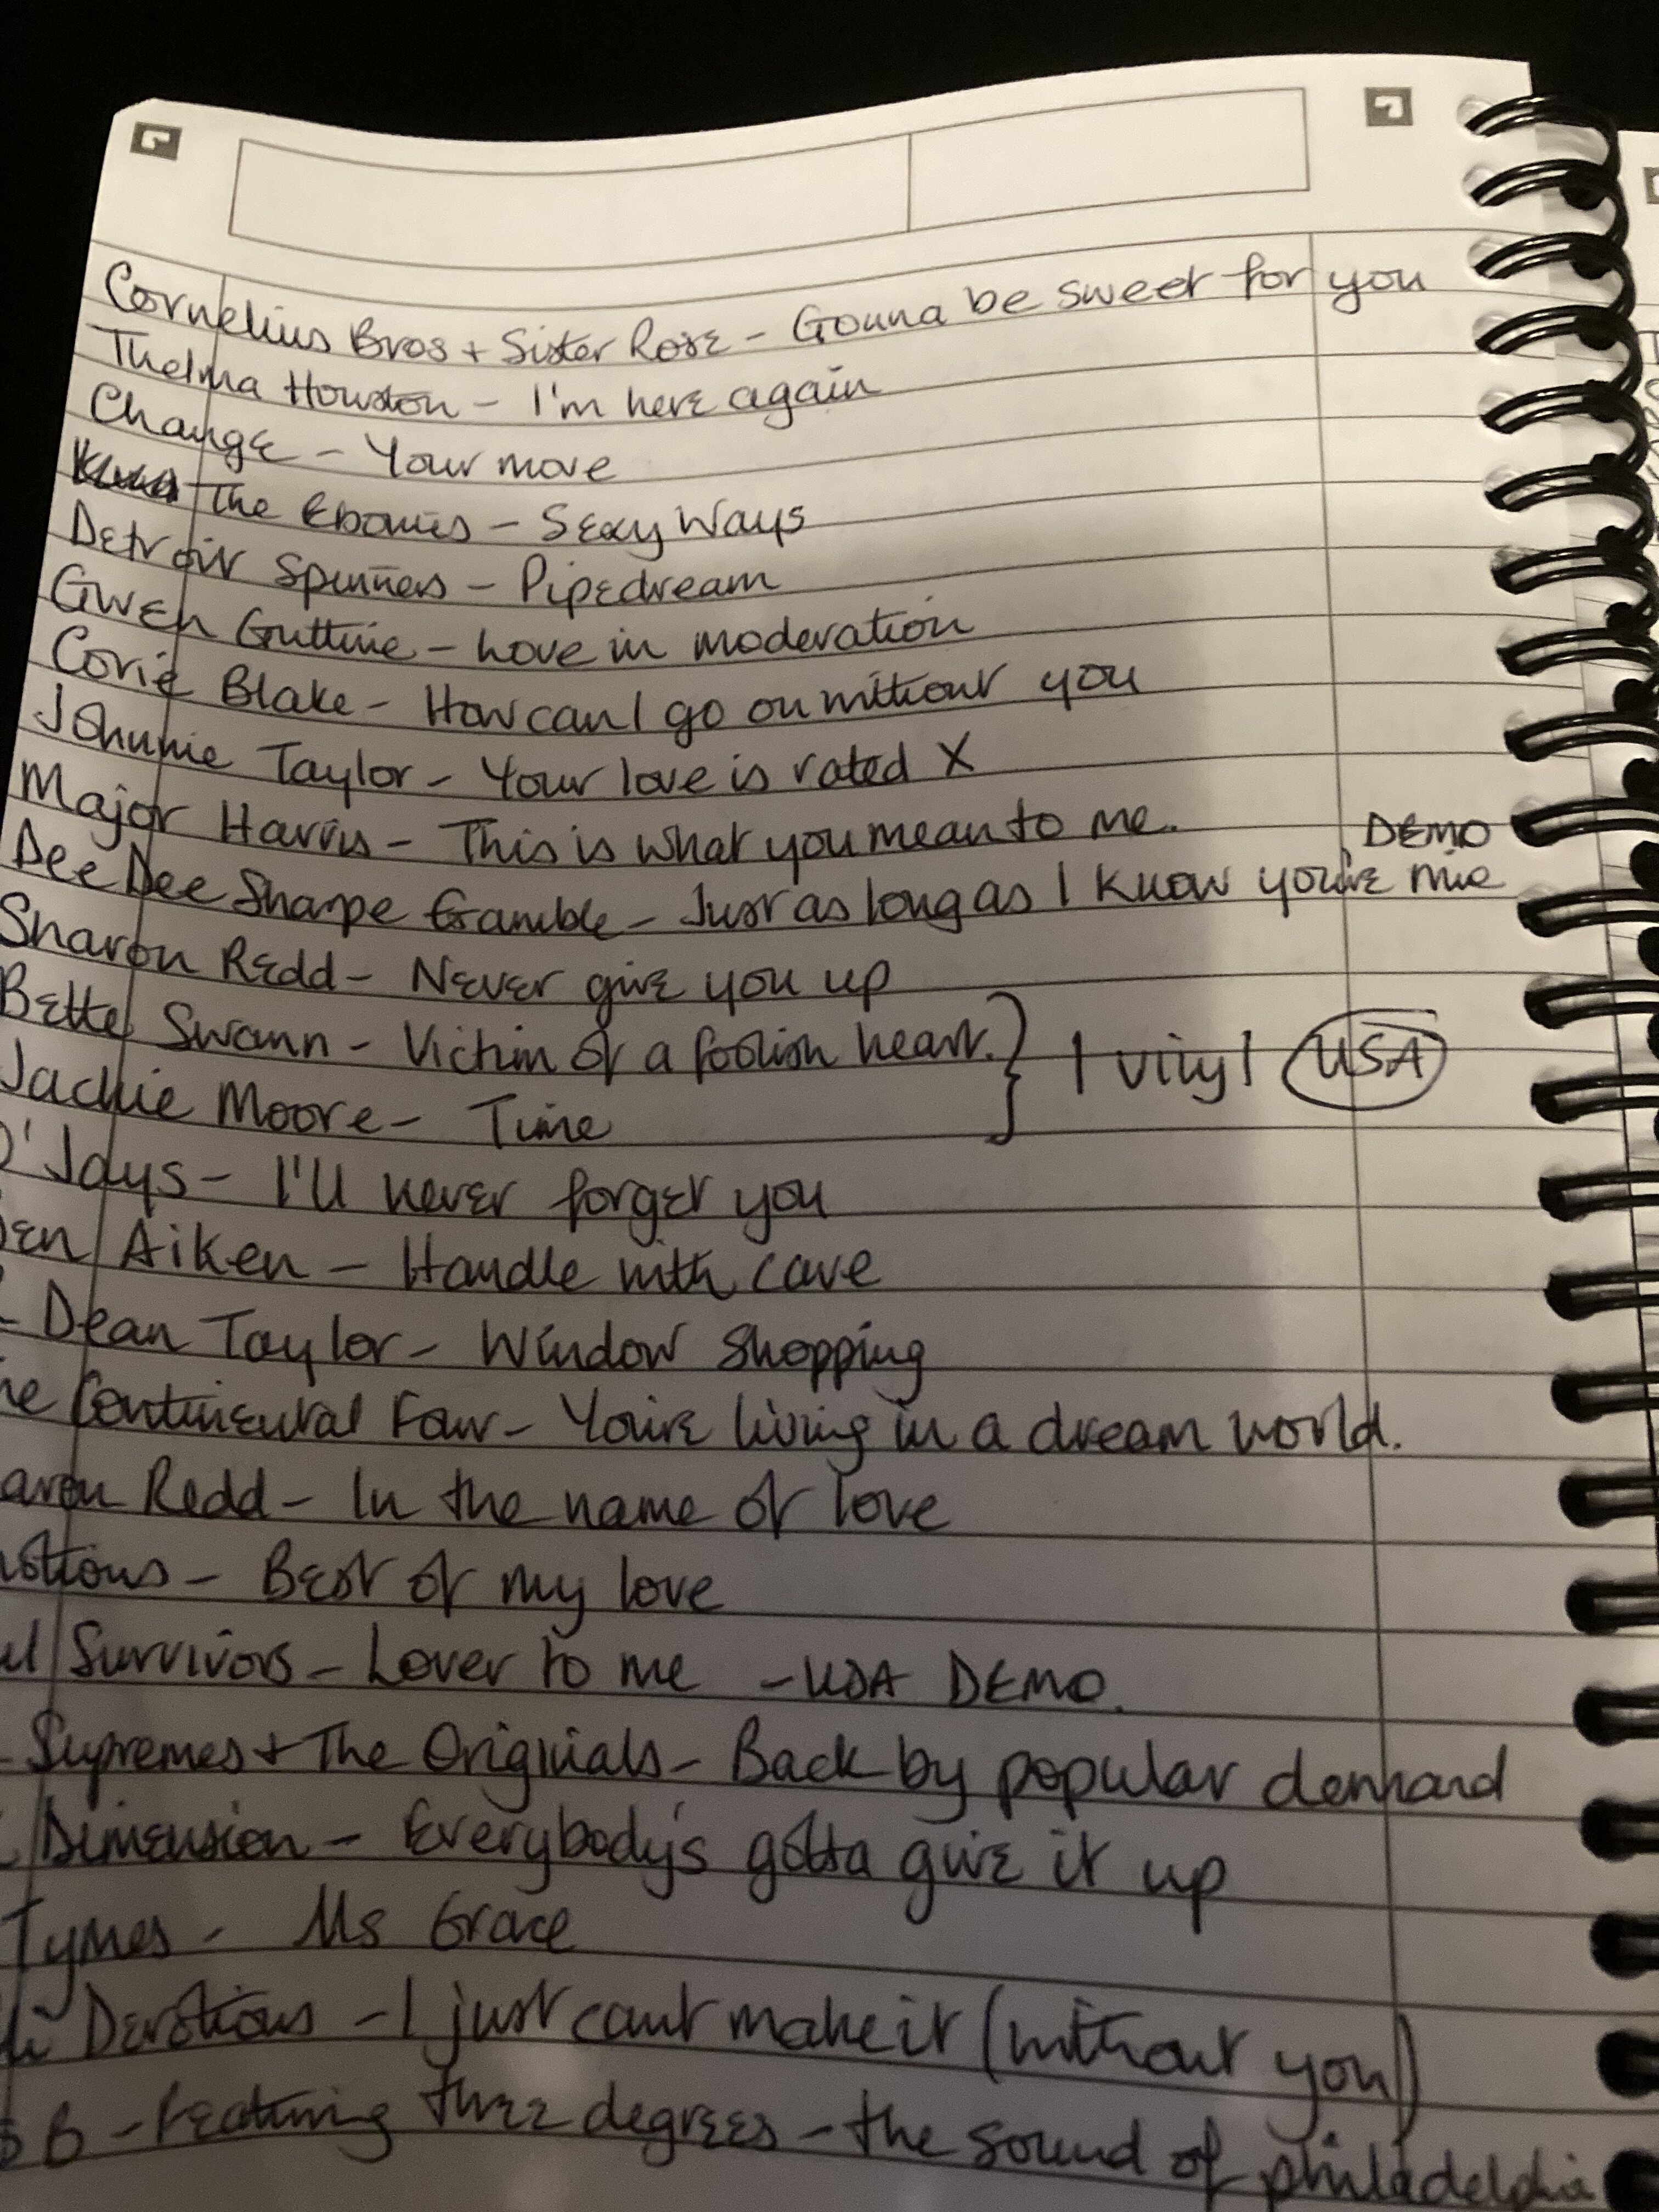 Cornelius Bros + Sister Rose - Gonna be sweet for you
Thelma Houston - I'm here again
Change - Your move
The Ebonies - Sexy Ways
Detroit Spinners - Pipedream
Gwen Guthrie - Love in moderation
Corie Blake - How can I go on without you
Johnnie Taylor - Your love is rated X
Major Harris - This is what you mean to me.
DEMO
Dee Dee Sharpe Gamble - Just as long as I know you're mie
Sharon Redd - Never give you up
Bette Swann - Victim of a foolish heart. } 1 vinyl USA
Jackie Moore - Time
O'Jays - I'll never forget you
en Aiken - Handle with care
Dean Taylor - Window Shopping
he Continental Four - You're living in a dream world.
aron Redd - In the name of love
otions - Best of my love
ul Survivors - Lover to me - USA DEMO.
Supremes + The Originals - Back by popular demand
Dimension - Everybody's gotta give it up
Tymes - Ms Grace
Devotions - I just cant make it (without you)
B - Featuring three degrees - the sound of philadelphia